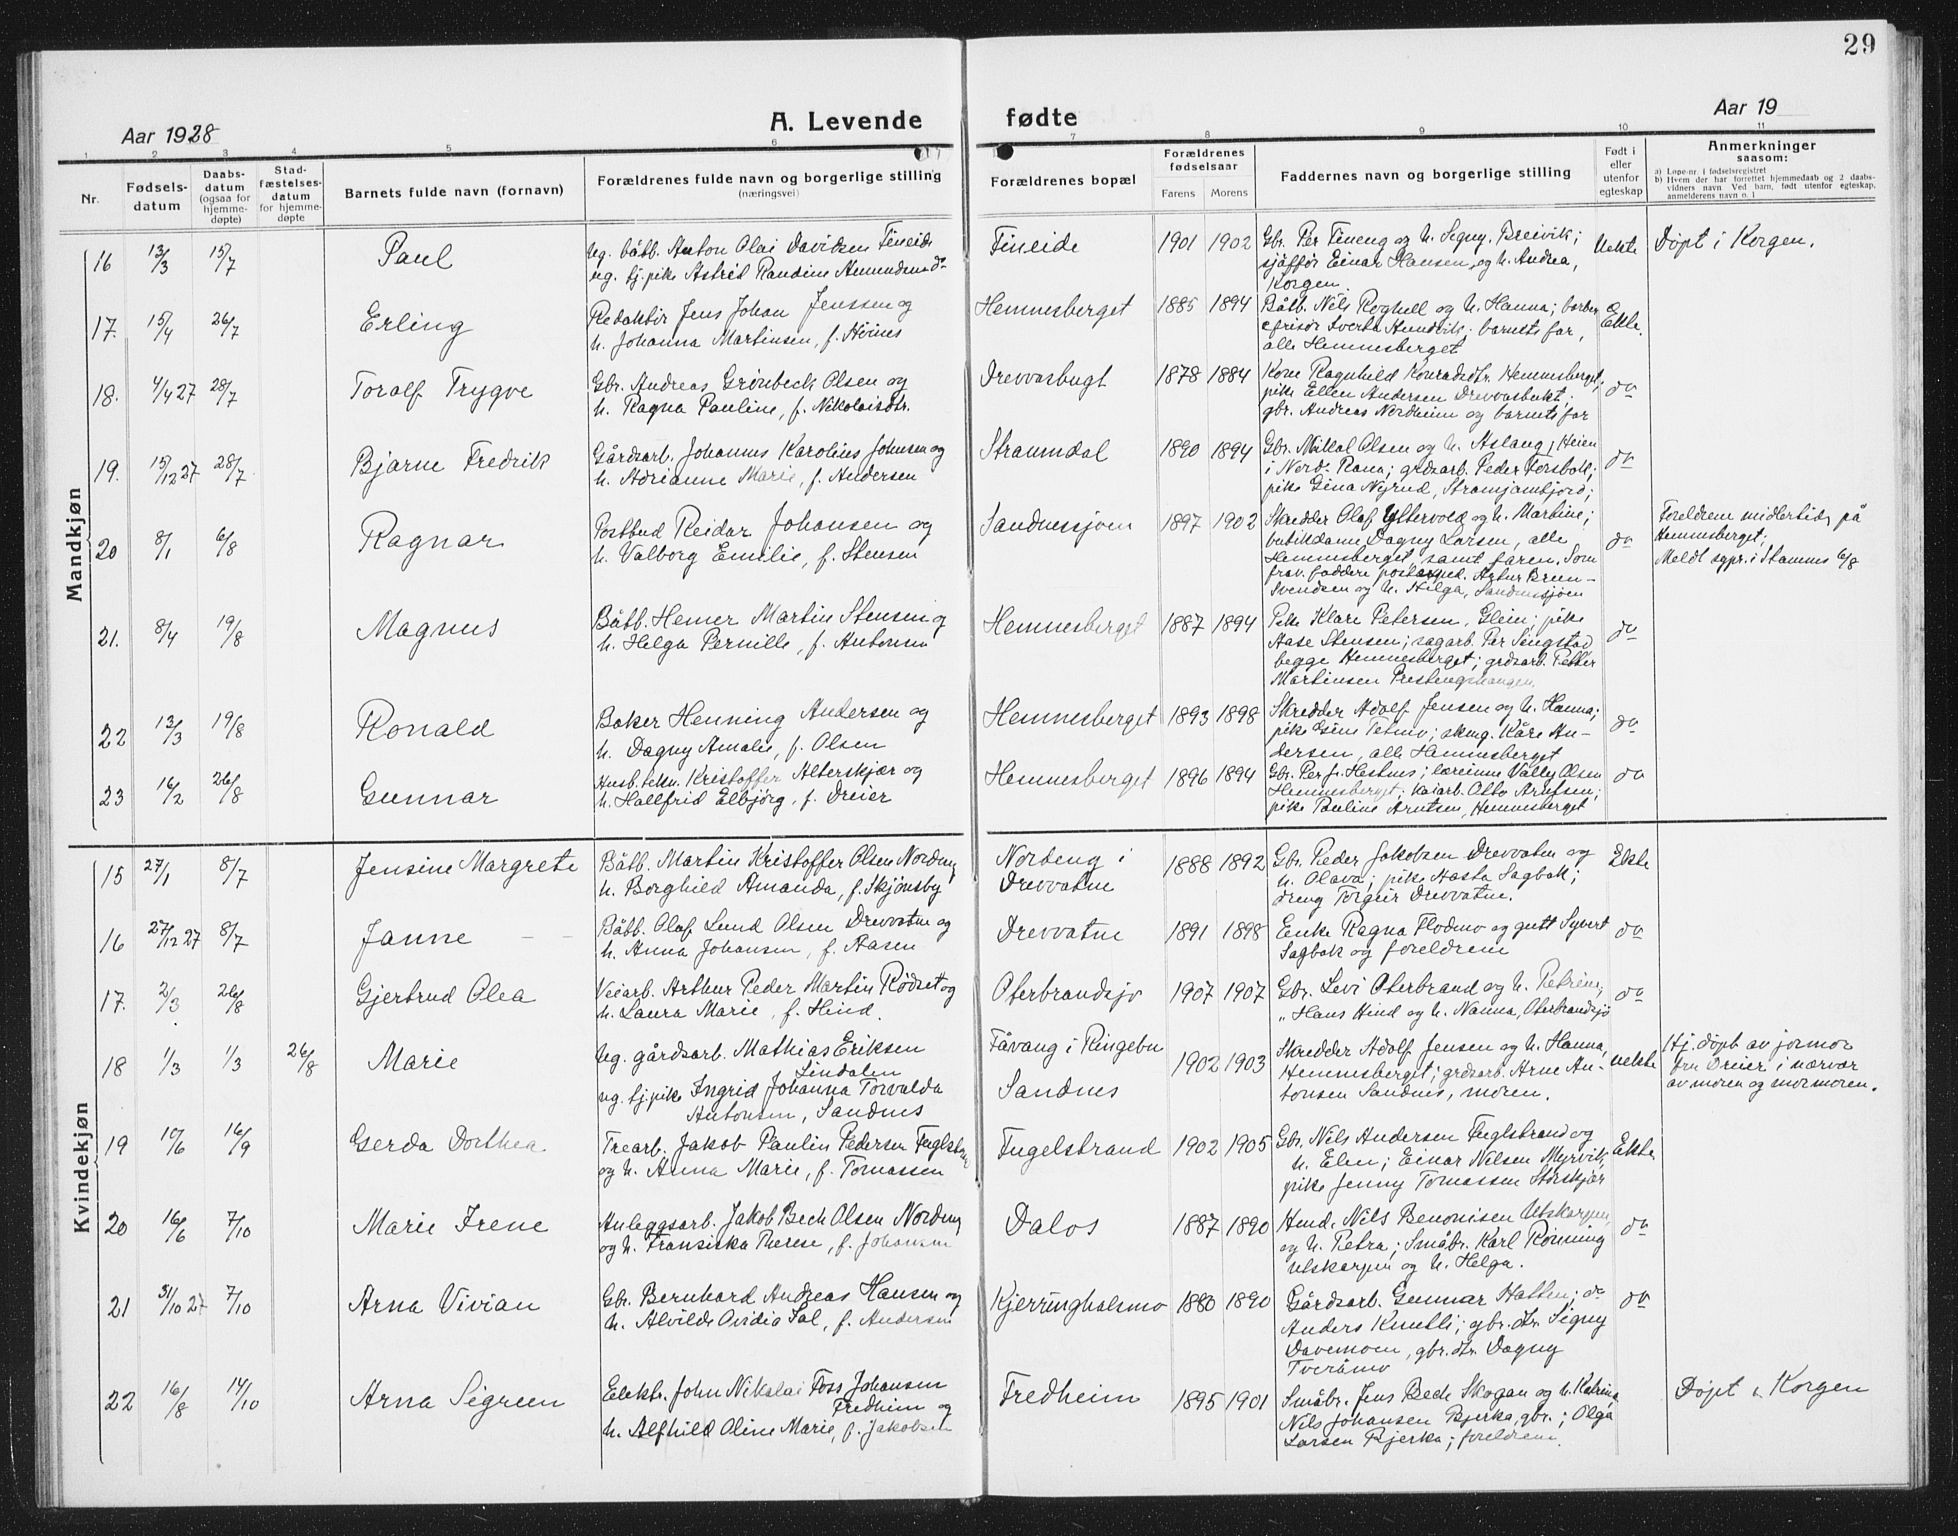 29
Aar 1928
A. Levende
fødte
Aar 19
1 2 3 4 5 6 7 8 9 10 11
Nr.
Fødsels-
datum
Daabs-
datum
(ogsaa for
hjemme-
døpte)
Stad-
fæstelses-
datum
for hjemme-
døpte
Barnets fulde navn (fornavn)
Forældrenes fulde navn og borgerlige stilling
(næringsvei)
Forældrenes bopæl
Forældrenes
fødselsaar
Farens Morens
Faddernes navn og borgerlige stilling
Født i
eller
utenfor
egteskap
Anmerkninger
saasom:
a) Løpe-nr. i fødselsregistret
b) Hvem der har forrettet hjemmedaab og 2 daabs-
vidners navn. Ved barn, født utenfor egteskap,
anmelderens navn o. l
Mandkjøn
16 13/3 15/7 Paul
Ug. båtb. Anton Olai Davidsen Fineide
ug. tj.pike Astrid Randine Amundsen do
Fineide 1901 1902
Gbr. Per Fineng og h. Signy, Breivik;
sjåffør Einar Hansen, og h. Andrea,
Korgen.
Uekte
Døpt i Korgen.
17. 15/4 26/7 Erling
Redaktør Jens Johan Jenssen og
h. Johanna Martinsen, f.
Hemnesberget 1885 1894
Båtb. Nils Roghell og h. Hanna; barber
barnets far,
alle Hemnesberget
Ekte.
18. 4/4 27 28/7 Toralf Trygve
Gbr. Andreas Grönbeck Olsen og
h. Ragna Pauline, f. Nikolaisdtr.
Drevvasbugt 1878 1884
Kone Ragnhild Konradsdtr. Hemnesberget;
pike Ellen Andersen Drevvasbukt;
gbr. Andreas Nordheim og barnets far
do
19. 15/12 27 28/7 Bjarne Fredrik
Gårdsarb. Johannes Karolius Johnsen og
h. Adrianne Marie, f. Andersen
Straumdal 1890 1894
Gbr. Mikal Olsen og h. Aslaug, Heien
i Nord-Rana; grdsarb. Peder Forsbak;
pike Gina Nyrud,
do
20 8/1 6/8 Ragnar
Postbud Reidar Johansen og
h. Valborg Emilie, f. Stensen
Sandnessjøen 1897 1902
Skredder Olaf Yttervold og h. Martine;
butikdame Dagny Larsen, alle
Hemnesberget, samt faren. Som
frav. faddere Artur Breen-
Svendsen og h. Helga, Sandnessjøen
do
Foreldrene midlertidig på
Hemnesberget;
Meldt sgpr. i Stamnes 6/8
21. 8/4 19/8 Magnus
Båtb. Hemer Martin Stensen og
h. Helga Pernille, f. Antonsen
Hemnesberget 1887 1894
Pike Klare Petersen, Glein; pike
Aase Stensen; sagarb. Per Singstad
begge Hemnesberget; grdsarb. Petter
Martinsen
do
22 13/3 19/8 Ronald
Baker Henning Andersen og
h. Dagny Amalie, f. Olsen
Hemnesberget 1893 1898
Skredder Adolf Jensen og h. Hanna;
pike Kåre An-
dersen, alle Hemnesberget
do
23 16/2 26/8 Gunnar
Kristoffer Alterskjær og
h. Hallfrid Elbjörg, f. Dreier
Hemnesberget 1896 1894
Gbr. Per lærerinne Vally Olsen
Hemnesberget; kaiarb. Otto Arntsen;
pike Pauline Arntsen, Hemnesberget
do
Kvindekjøn
15 27/1 8/7 Jensine Margrete
Båtb. Martin Kristoffer Olsen Nordeng
h. Borghild Amanda, f. Skjönsby
Nordeng i
Drevvatne
1888 1892
Gbr. Peder Jakobsen Drevvatne og
h. Olava; pike Aasta Sagbak;
dreng Torgeir Drevvatne.
Ekte
16 27/12 27 8/7 Janne
Båtb. Olaf Lund Olsen Drevvatne og
h. Anna Johansen, f. Aasen
Drevvatne 1891 1898
Enke Ragna Flodmo og gutt Syvert
Sagbak og foreldrene
do
17. 2/3 26/8 Gjertrud Olea
Veiarb. Arthur Peder Martin Rödset og
h. Laura Marie, f. Hind.
Oterbrandsjo 1907 1907
Gbr. Levi Oterbrand og h. Petrine;
" Hans Hind og h. Nanna, Oterbrandsjö
do
18 1/3 1/3 26/8 Marie
Ug. gårdsarb. Mathias Eriksen
Lindalen
ug. tj.pike Ingrid Johanna Torvalda
Antonsen, Sandnes
Fåvang i Ringebu
Sandnes
1902 1903
Skredder Adolf Jensen og h. Hanna,
Hemnesberget; grdsarb. Arne An-
tonsen Sandnes, moren.
uekte
Hj. døpt av jormor
fru Dreier i nærvær
av moren og mormoren.
19 10/6 16/9 Gerda Dorthea
Trearb. Jakob Paulin Pedersen Fuglstrand
og h. Anna Marie, f. Tomassen
Fugelstrand 1902 1905
Gbr. Nils Andersen Fuglstrand og
h. Elen; Einar Nilsen Myrvik,
pike Jenny Tomassen Storskjær
Ekte
20 16/6 7/10 Marie Irene
Anleggsarb. Jakob Bech Olsen Nordeng
og h. Fransiska Therese, f. Johansen
Dalos 1887 1890
Hand. Nils Benonisen Utskarpen,
og h. Petra; Småbr. Karl Rönning
Utskarpen og h. Helga.
do
21 31/10 27 7/10 Arna Vivian
Gbr. Bernhard Andreas Hansen og
h. Alvilde Ovidia Sal, f. Andersen
Kjerringhalsmo 1880 1890
Gårdsarb. Gunnar Hatten; do
Anders Knutli; gbr. dtr. Signy
Davemoen, gbr. dtr. Dagny
Tveråmo
do
22 16/8 14/10 Arna Sigreen
Elektr. John Nikolai Foss Johansen
Fredheim og
h. Alfhild Oline Marie, f. Jakobsen
Fredheim 1895 1901
Småbr. Jens Bech Skogan og h. Katrine
Nils Johansen Bjerka, gbr.; Olga
Larsen Bjerka; foreldrene.
Døpt i Korgen